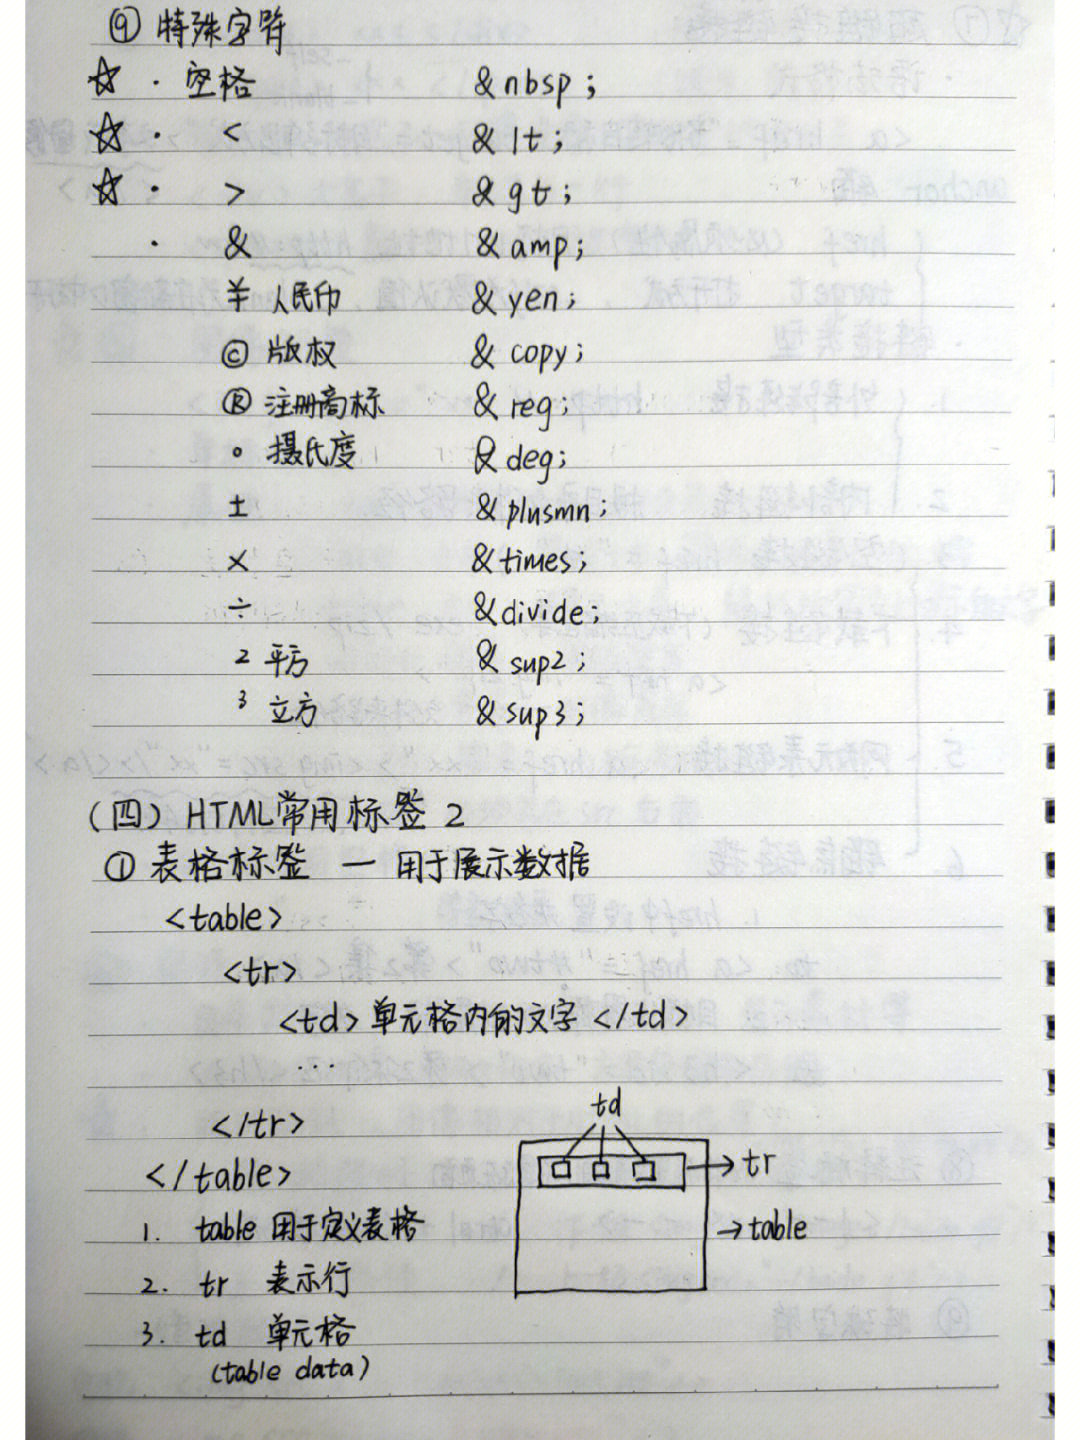 ⑨ 特殊字符
☆ · 空格 &nbsp;
☆ · < &lt;
☆ · > &gt;
· & &amp;
¥ 人民币 &yen;
© 版权 &copy;
® 注册商标 &reg;
° 摄氏度 &deg;
± &plusmn;
× &times;
÷ &divide;
² 平方 &sup2;
³ 立方 &sup3;
(四) HTML常用标签 2
① 表格标签 — 用于展示数据
<table>
<tr>
<td> 单元格内的文字 </td>
...
</tr>
</table>
td
→ tr
→ table
1. table 用于定义表格
2. tr 表示行
3. td 单元格
(table data)